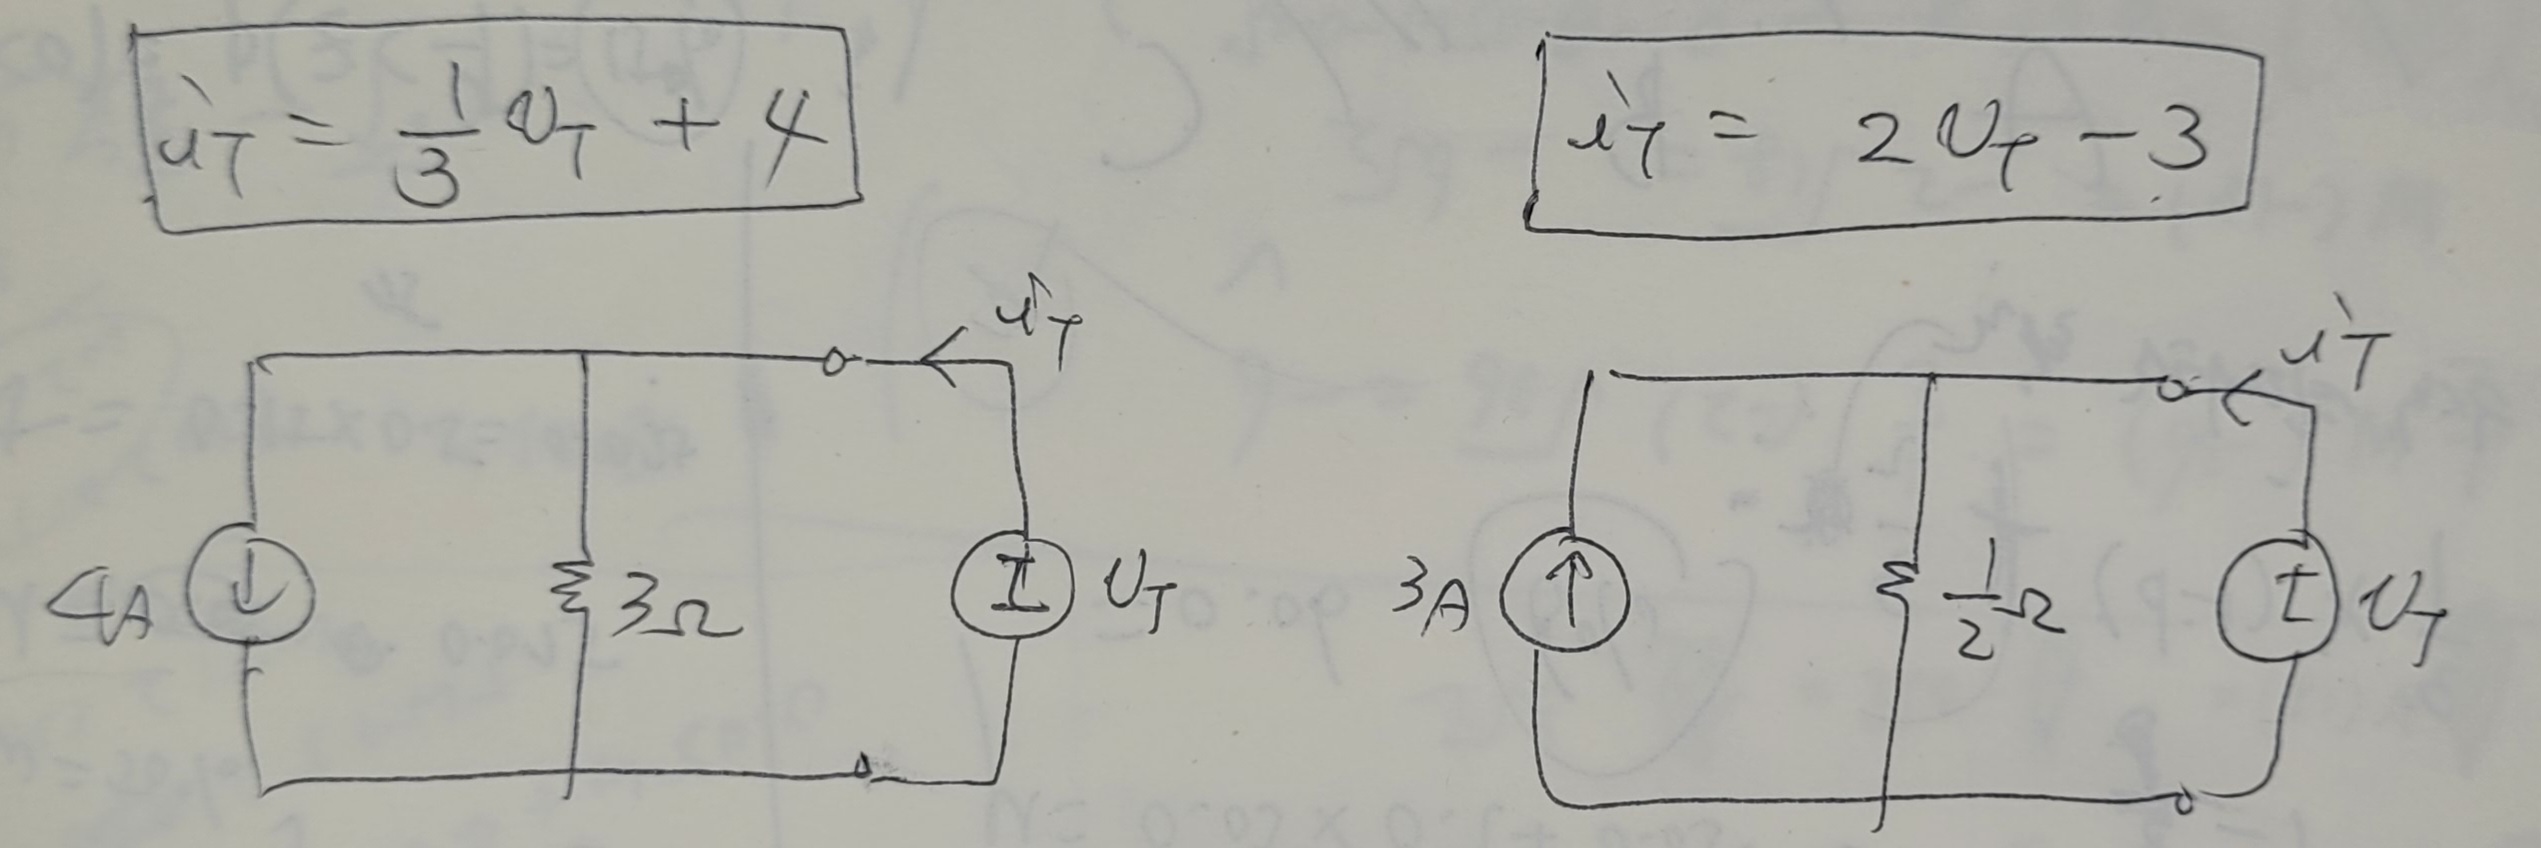 i_T = 1/3 v_T + 4
i_T = 2 v_T - 3
i_T
4A
3Ω
v_T
i_T
3A
1/2 Ω
v_T